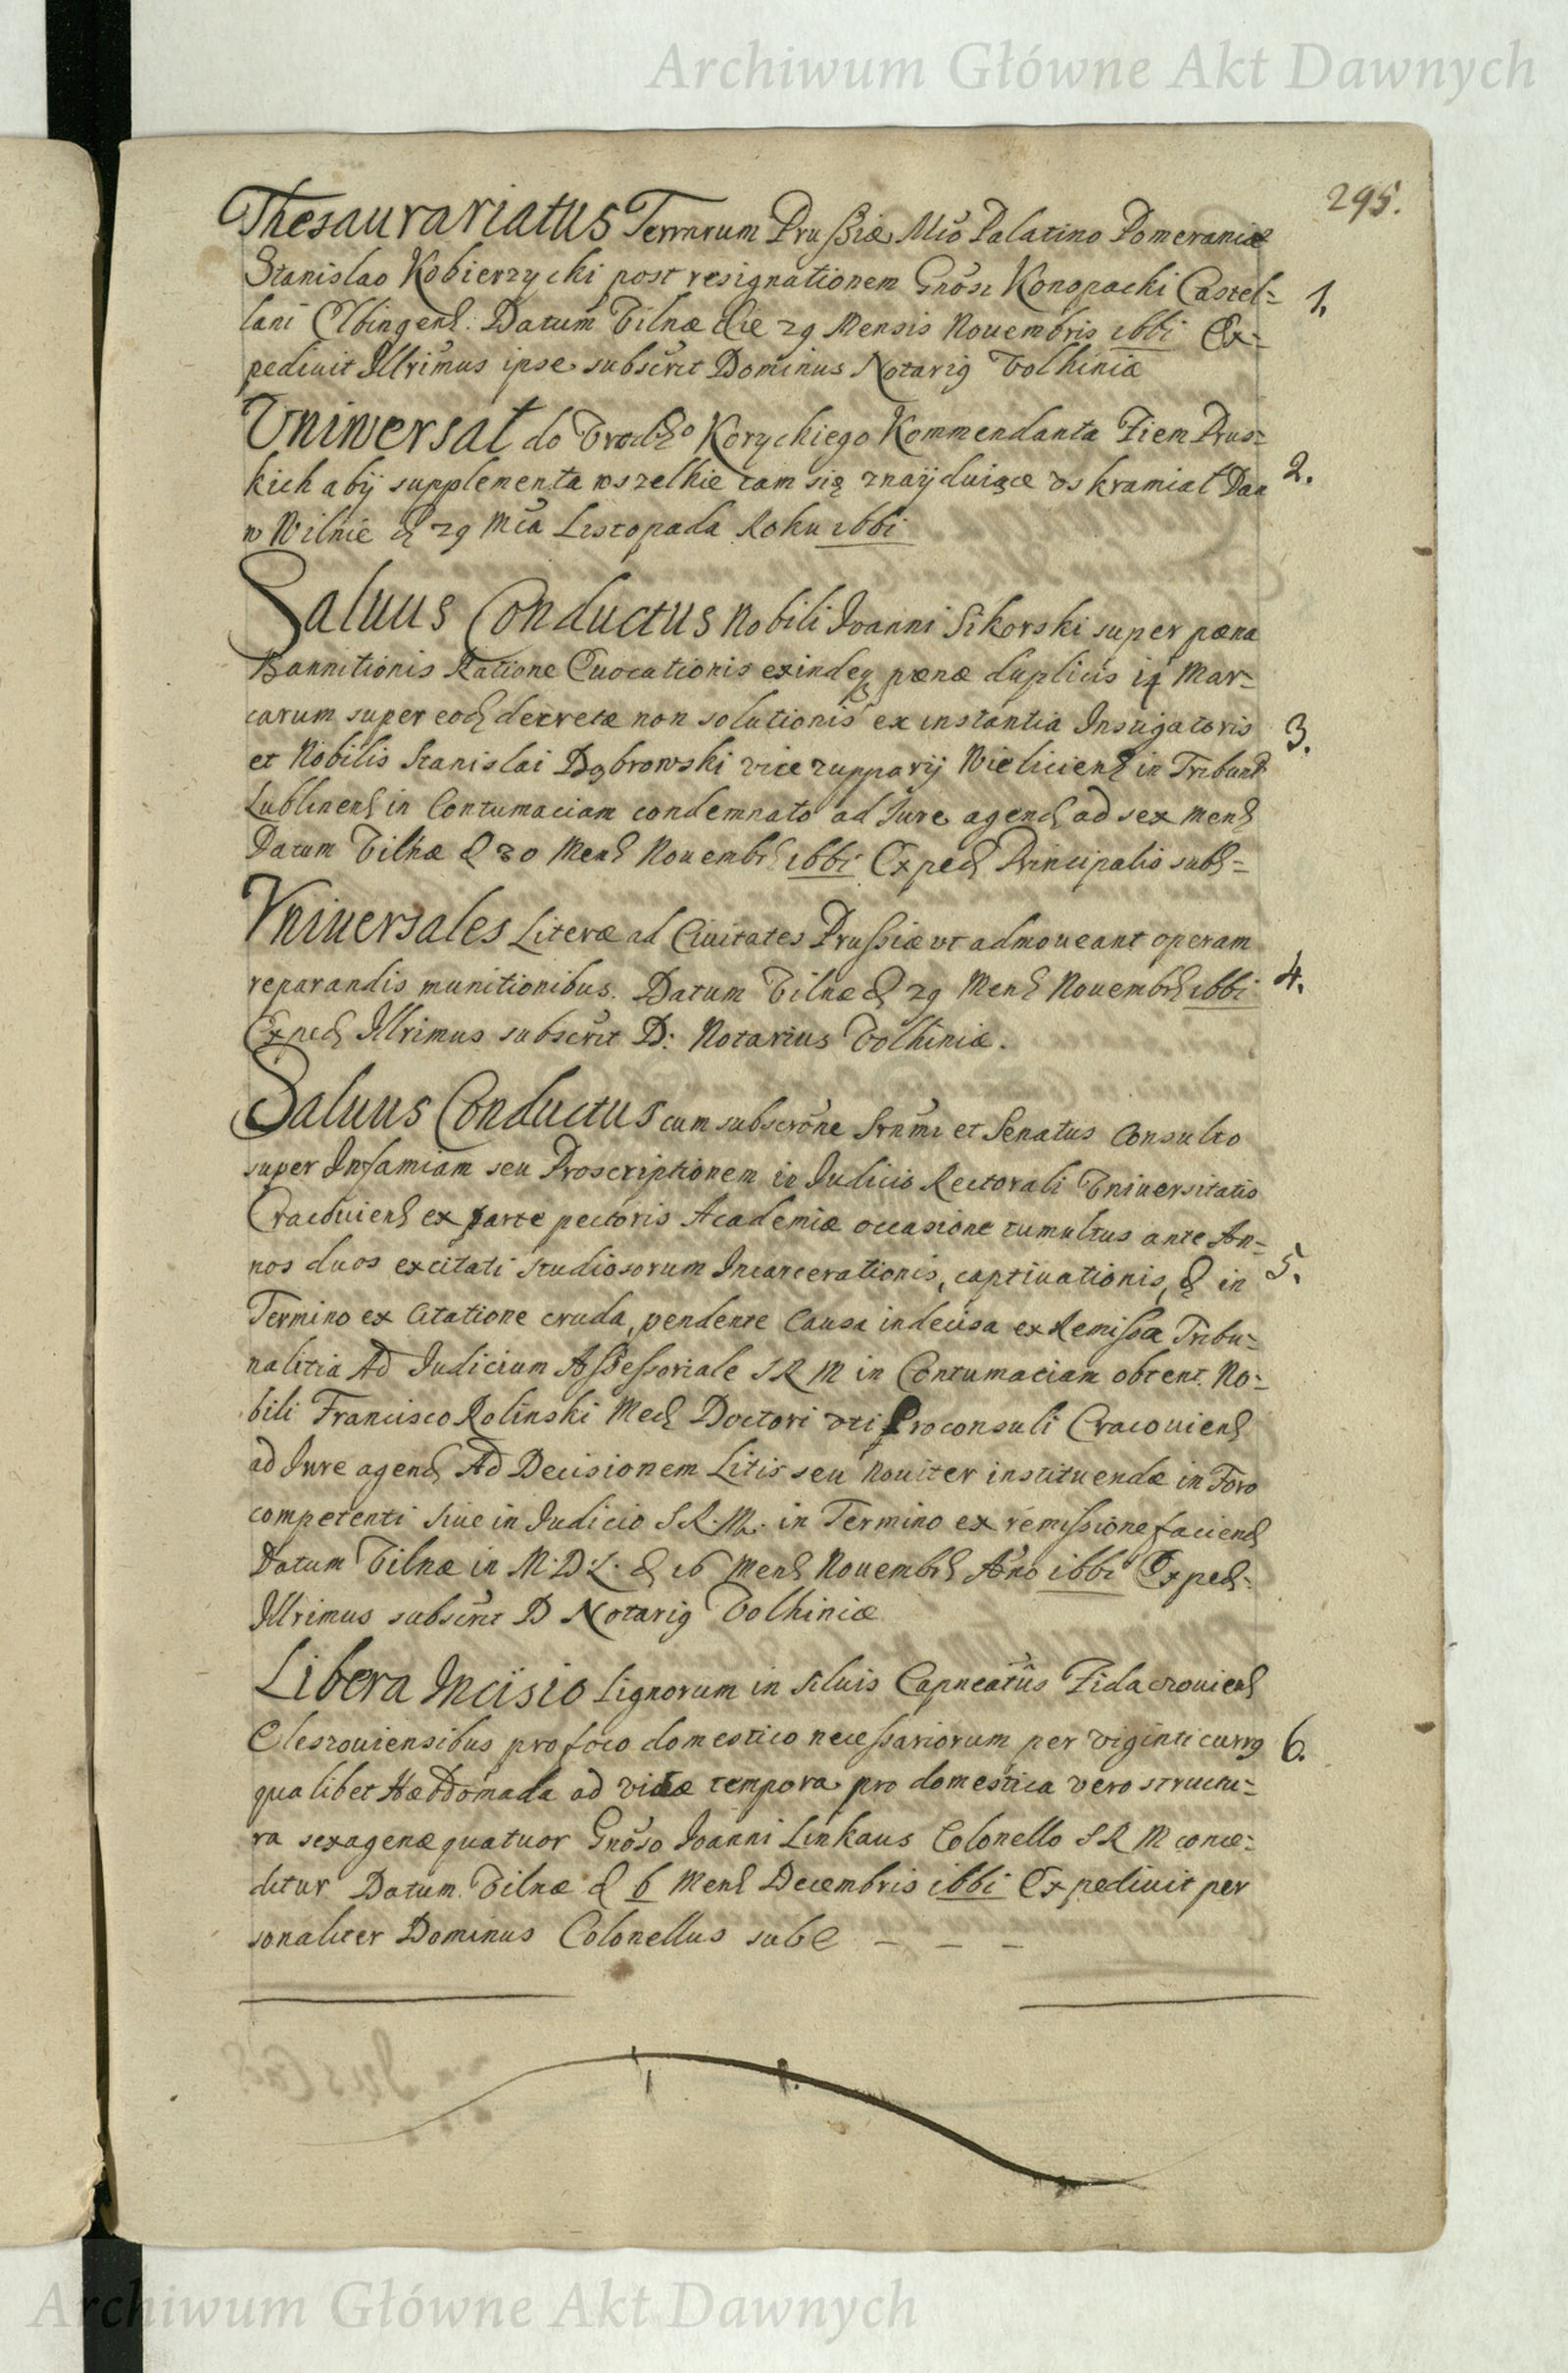 Archiwum Główne Akt Dawnych
295.
Thesaurariatus Terrarum Prussiæ Mco Palatino Pomeraniæ
Stanislao Kobierzycki post resignationem Gnosi Konopacki Castel=
lani Elbingens: Datum Vilnæ die 29 Mensis Nouembris 1661 Ex=
pediuit Illrimus ipse subscrit Dominus Notari9 Volhiniæ
1.
Vniwersał do Vrodz° Koryckiego Kommendanta Ziem Prus=
kich abÿ supplementa wszelkie tam się znaÿduiące vskramiał Dan
w Wilnie d 29 Mca Listopada Roku 1661
2.
Saluus Conductus Nobili Joanni Sikorski super pæna
Bannitionis Ratione Euocationis exindeq3 pænæ duplicis 14 Mar=
carum super eod decretæ non solutionis ex instantia Instigatoris
et Nobilis Stanislai Dąbrowski vice zupparij Wieliciens in Tribunal
Lublinens in Contumaciam condemnato ad Jure agend ad sex mens
Datum Vilnæ d 30 Mens Nouembr 1661 Exped Principalis subs=
3.
Vniuersales Literæ ad Ciuitates Prussiæ vt admoueant operam
reparandis munitionibus. Datum Vilnæ d 29 Mens Nouembr 1661
Exped Illrimus subscrit D: Notarius Volhiniæ.
4.
Saluus Conductus cum subscrone Srnmi et Senatus Consulto
super Infamiam seu Proscriptionem in Judicio Rectorali Vniuersitatis
Cracouiens ex parte pectoris Academiæ occasione tumultus ante An=
nos duos excitati studiosorum Incarcerationis, captiuationis, & in
Termino ex Citatione cruda, pendente Causa indecisa ex Remissa Tribu=
nalitia Ad Judicium Assessoriale S R M in Contumaciam obtent. No=
bili Francisco Rolinski Med Doctori vti Proconsuli Cracouiens
ad Jure agend Ad Decisionem Litis seu nouiter instituendæ in Foro
competenti siue in Judicio S R. M. in Termino ex remissione faciend
Datum Vilnæ in M. D. L. d 16 Mens Nouembr Ano 1661 Exped.
Illrimus subscrit D Notari9 Volhiniæ
5.
Libera Incisio Lignorum in siluis Capneatus
Cleszouiensibus pro foco domestico necessariorum per viginti curr9
qualibet Hæbdomada ad vitæ tempora pro domestica vero structu=
ra sexagenæ quatuor Gnoso Joanni Linkaus Colonello S R M conce=
ditur Datum Vilnæ d 6 Mens Decembris 1661 Expediuit per
sonaliter Dominus Colonellus subs – – –
6.
Archiwum Główne Akt Dawnych